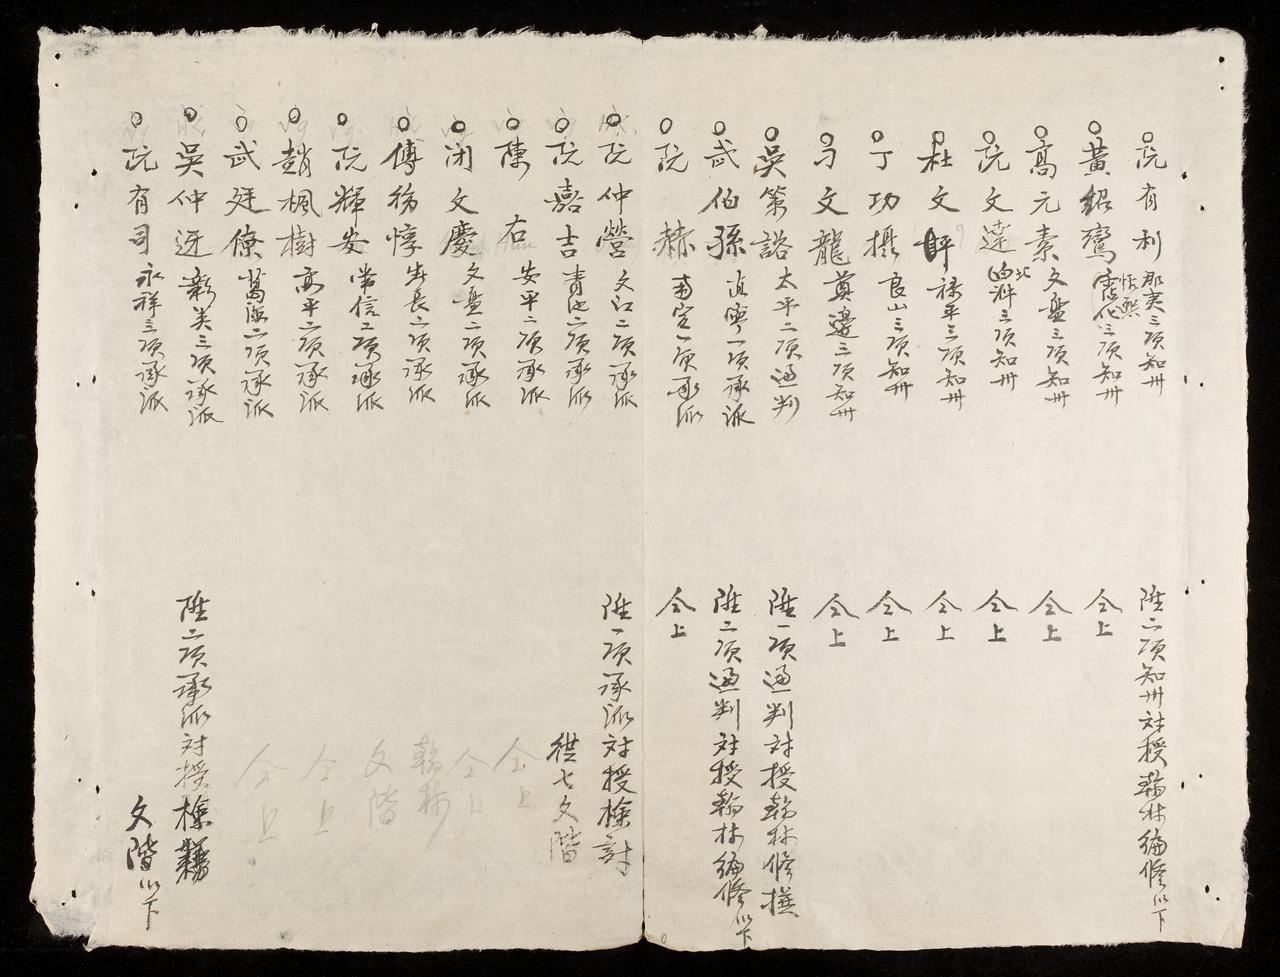 阮有利 那夷三項知州 陞二項知州対授翰林編修以下
黃紹鸞 恬熙 三項知州 仝上
高元素 文盤三項知州 仝上
阮文達 三項知州 仝上
杜文 祿平三項知州 仝上
丁功攝 良山三項知州 仝上
刁文龍 奠邊三項知州 仝上
吳第谿 太平二項通判 陞一項通判対授翰林修撰
武伯孫 直寧一項承派 陞二項通判対授翰林編修以下
阮赫 南定一項承派 仝上
阮仲營 文江二項承派 陞一項承派対授檢討
阮嘉吉 青池二項承派 從七文階
陳右 安平二項承派 仝上
闭文慶 文盤二項承派 仝上
傅務惇 安長二項承派 翰林
阮輝安 常信二項承派 文階
趙楓樹 高平二項承派 仝上
武廷僚 二項承派 仝上
吳仲迓 彰美三項承派 陞二項承派対授檢
阮有司 永祥三項承派 文階以下